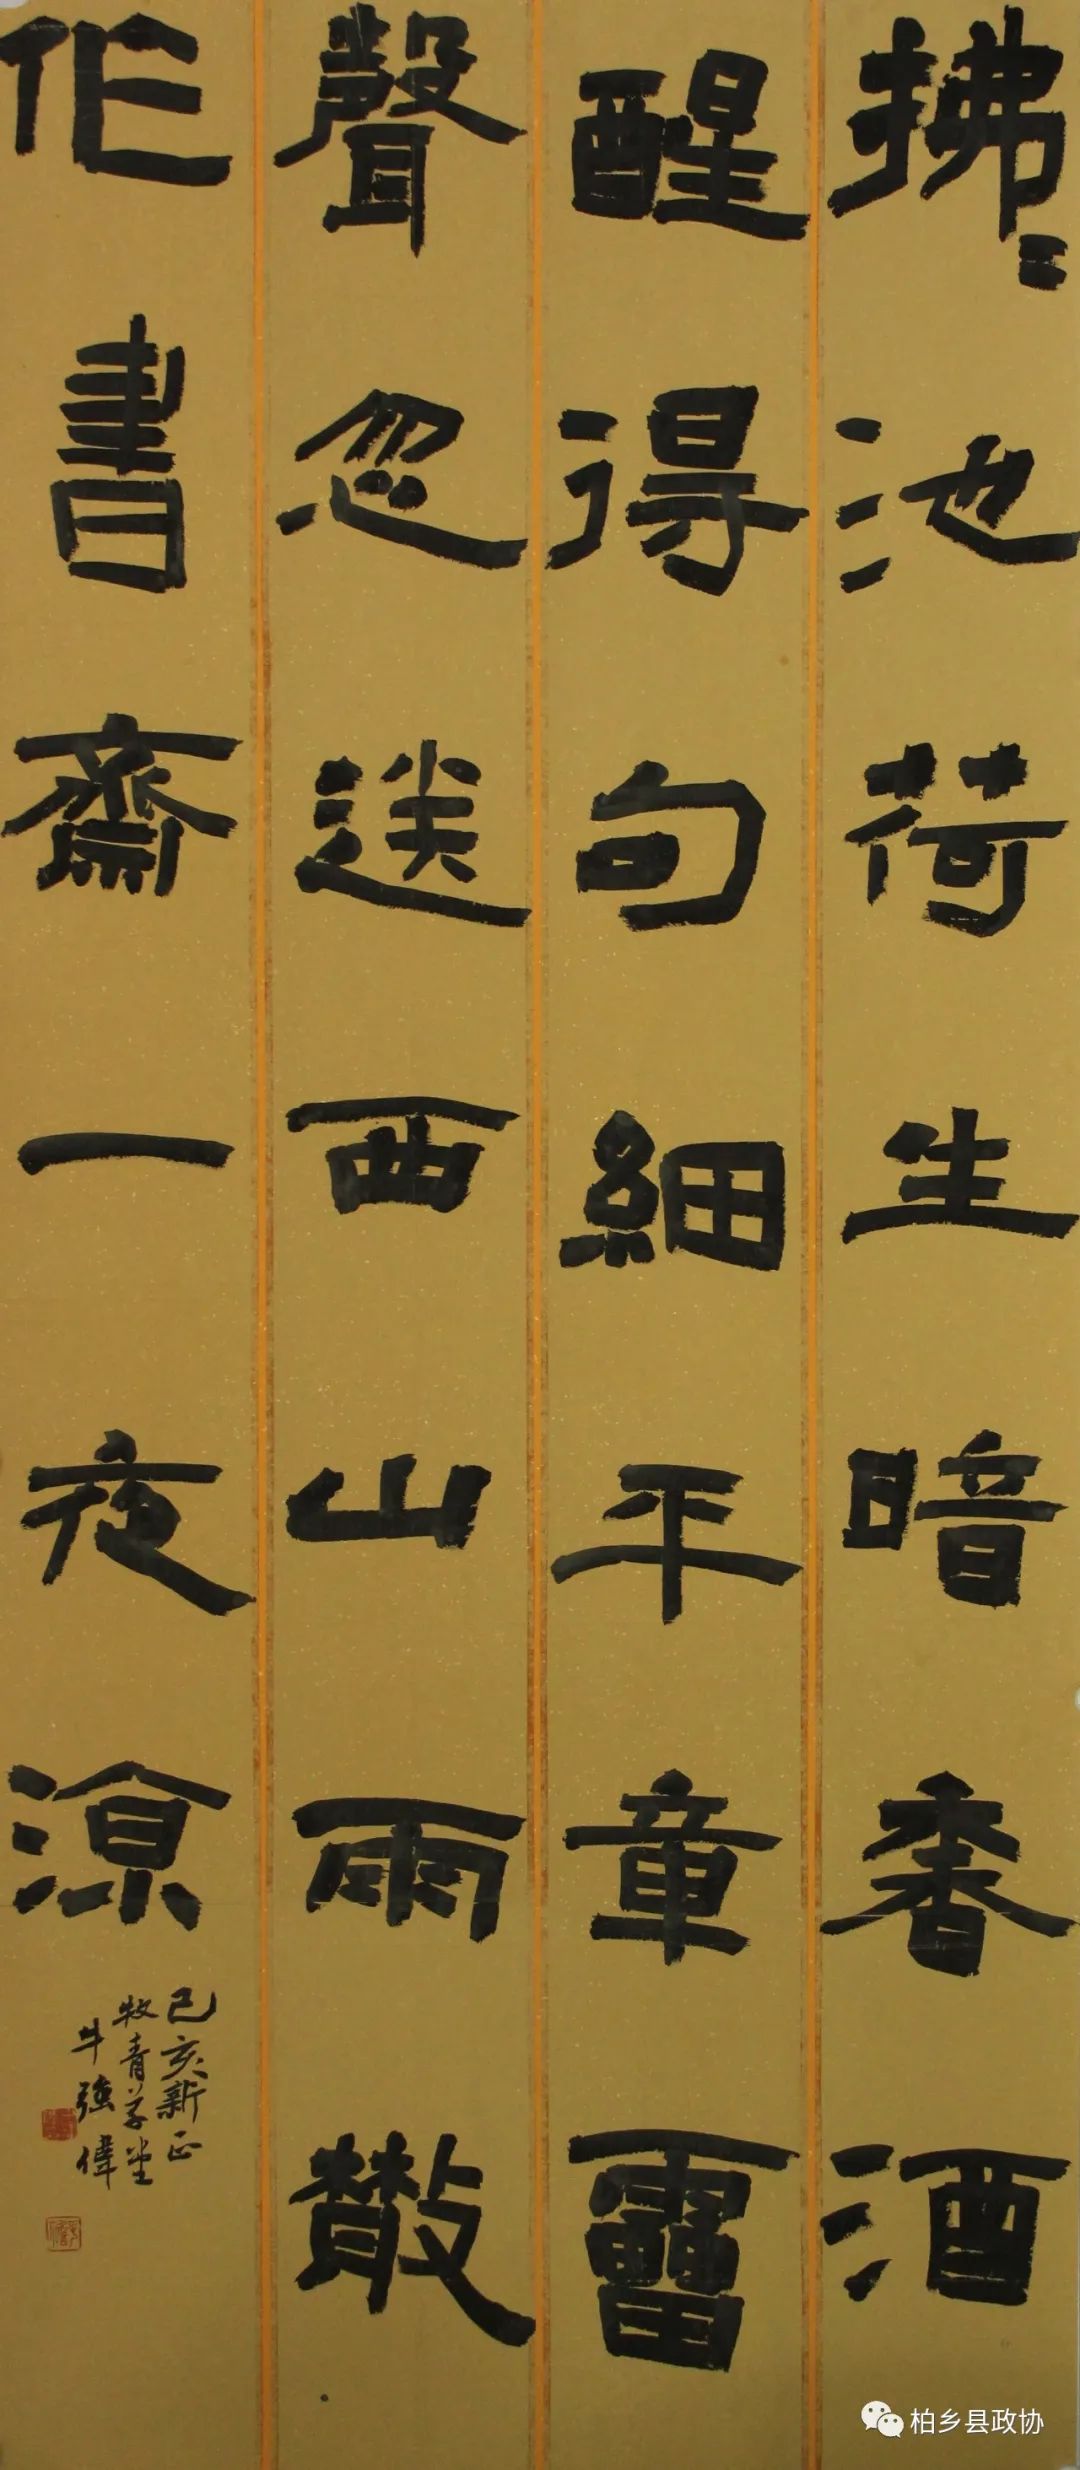 拂〻池荷生暗香酒
醒得句細平章雷
聲忽送西山雨散
作書齋一夜涼
己亥新正
牧青草堂
牛強偉
柏乡县政协